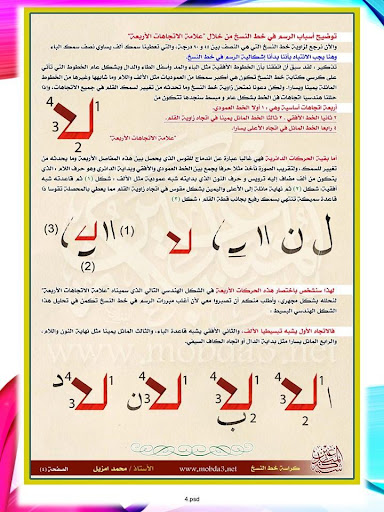 توضيح أسباب الرسم في خط النسخ من خلال "علامة الاتجاهات الأربعة"
والآن نرجع لزاوية خط النسخ التي هي النصف بين ٤٥ و ٩٠ درجة، والتي تعطينا سمك ألف يساوي نصف سمك الباء
وهنا يجب الانتباه بأننا بدأنا إشكالية الرسم في خط النسخ.
تذكير: لقد سبق أن اتفقنا بأن الخطوط الأفقية مثل الباء والمد وأسفل الطاء والدال وبشكل عام الخطوط التي تأتي
على كرسي كتابة خط النسخ تكون هي أكبر سمكا من العموديات مثل الألف واللام وما شابهها وغيرها من الخطوط
المائلة يمينا ويسارا. ولكن دعونا نمتحن زاوية خط النسخ وما تحدثه من تغيير لسمك القلم في جميع الاتجاهات، وإذا
حللنا هندسيا اتجاهات فن الخط بشكل عام و مبسط سنجدها تتكون من
أربعة اتجاهات أساسية وهي: ١ أولا الخط العمودي.
٢ ثانيا الخط الأفقي . ٣ ثالثا الخط المائل يمينا في اتجاه زاوية القلم.
٤ رابعا الخط المائل في اتجاه أعلى يسارا.
1
4
3
2
"علامة الاتجاهات الأربعة"
أما بقية الحركات الدائرية فهي غالبا عبارة عن اندماج للقوس الذي يحصل بين هذه المفاصل الأربعة وما يحدثه من
تغيير للسمك، ولتقريب الصورة نأخذ مثلا حرفا يجمع بين الخط العمودي والأفقي وبداية الدائري وهو حرف اللام ، الذي
يتكون من ألف مضاف إليه ترويس و حرف النون الذي بدايته شبه عمودية مثل الألف ، شكل (١) ثم قاعدته شبه
أفقية، شكل (٢) ثم نهاية مائلة إلى الأعلى واليمين بشكل مقوس في اتجاه زاوية القلم مما يعطي بالمحصلة تقوسا ذا
قاعدة سميكة تنتهي بسمك رفيع بجانب قطة القلم ، شكل (٣)
ل ن
(3)
(1)
(2)
لهذا سنشخص باختصار هذه الحركات الأربعة في الشكل الهندسي التالي الذي سميناه "علامة الاتجاهات الأربعة"
لنحلله بشكل مجهري، وأطلب منكم أن تصبروا معي لأن أغلب مبررات الرسم في خط النسخ تكمن في تحليل هذا
الشكل الهندسي البسيط.
فالاتجاه الأول يشبه تبسيطيا الألف، والثاني الأفقي يشبه قاعدة الباء، والثالث المائل يمينا مثل نهاية النون واللام،
والرابع المائل يسارا مثل بداية الدال أو اتجاه الكاف السيفي.
www.mobda3.net
ا 1 4 3 2
ب 1 4 3 2
ن 1 4 3
د 1 4 3
كراسة خط النسخ
www.mobda3.net
الأستاذ / محمد امزيل
الصفحة (٤)
4.psd